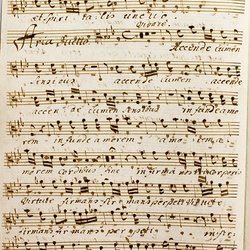 et spiri talis unctio
Aria Duetto
Accende lumen
sensibus accende lumen accende
accende lumen sensibus infunde amo
rem infunde amorem amorem
morem cordibus infirma nostri corporis
virtute firmans firmans perpeti virtute
firmans firmans perpeti